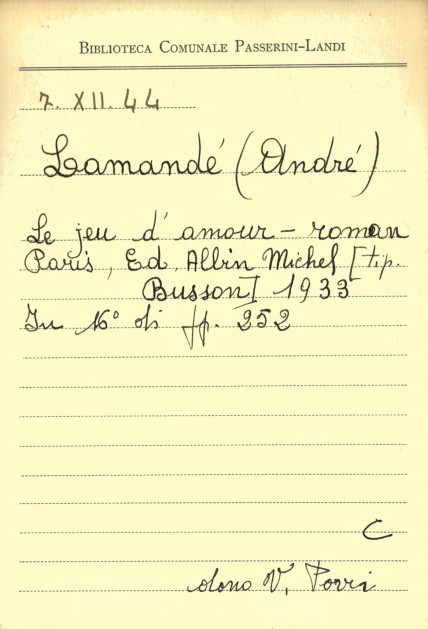 BIBLIOTECA COMUNALE PASSERINI-LANDI
7. XII. 44
Lamandé (André)
Le jeu d'amour – roman
Paris, Ed. Albin Michel [tip.
Busson] 1933
In 16° di pp. 252
C
dono V. Porri